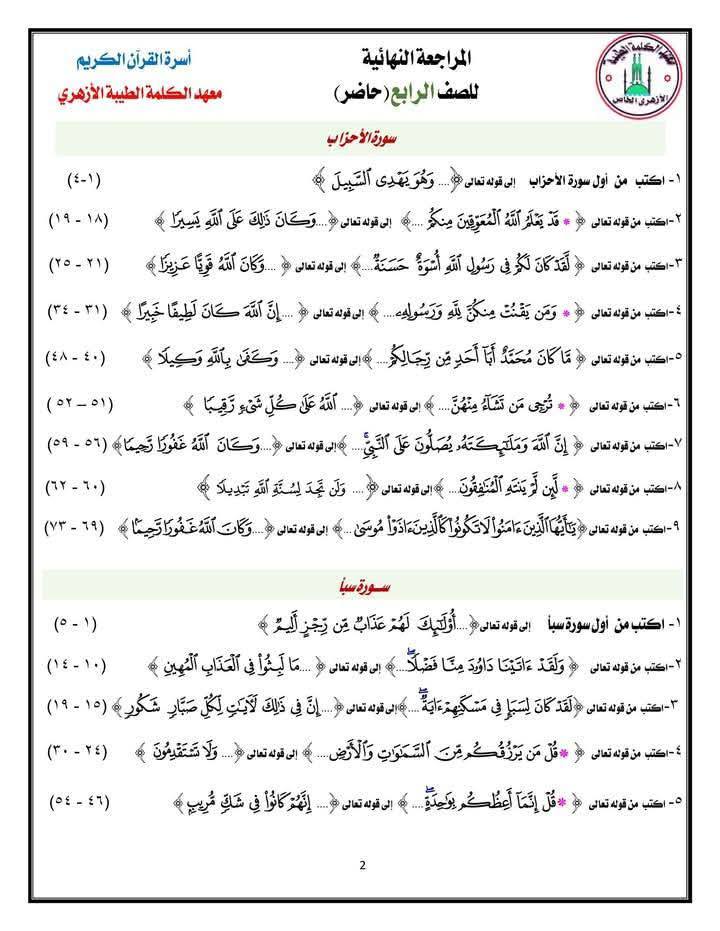 المراجعة النهائية
للصف الرابع (حاضر)
أسرة القرآن الكريم
معهد الكلمة الطيبة الأزهري
معهد الكلمة الطيبة
الأزهري الخاص
سورة الأحزاب
١- اكتب من أول سورة الأحزاب إلى قوله تعالى ﴿.... وَهُوَ يَهْدِى ٱلسَّبِيلَ ﴾ (١-٤)
٢-اكتب من قوله تعالى ﴿ * قَدْ يَعْلَمُ ٱللَّهُ ٱلْمُعَوِّقِينَ مِنكُمْ ....﴾ إلى قوله تعالى ﴿....وَكَانَ ذَٰلِكَ عَلَى ٱللَّهِ يَسِيرًا ﴾ (١٨ - ١٩)
٣-اكتب من قوله تعالى ﴿ لَّقَدْ كَانَ لَكُمْ فِى رَسُولِ ٱللَّهِ أُسْوَةٌ حَسَنَةٌ....﴾ إلى قوله تعالى ﴿ ....وَكَانَ ٱللَّهُ قَوِيًّا عَزِيزًا ﴾ (٢١ - ٢٥)
٤-اكتب من قوله تعالى ﴿ * وَمَن يَقْنُتْ مِنكُنَّ لِلَّهِ وَرَسُولِهِۦ.... ﴾ إلى قوله تعالى ﴿ ....إِنَّ ٱللَّهَ كَانَ لَطِيفًا خَبِيرًا ﴾ (٣١ - ٣٤)
٥-اكتب من قوله تعالى ﴿ مَّا كَانَ مُحَمَّدٌ أَبَآ أَحَدٍ مِّن رِّجَالِكُمْ....﴾ إلى قوله تعالى ﴿ .... وَكَفَىٰ بِٱللَّهِ وَكِيلًا ﴾ (٤٠ - ٤٨)
٦-اكتب من قوله تعالى ﴿ * تُرْجِى مَن تَشَآءُ مِنْهُنَّ.... ﴾ إلى قوله تعالى ﴿.... ٱللَّهُ عَلَىٰ كُلِّ شَىْءٍ رَّقِيبًا ﴾ (٥١ – ٥٢ )
٧-اكتب من قوله تعالى ﴿ إِنَّ ٱللَّهَ وَمَلَـٰٓئِكَتَهُۥ يُصَلُّونَ عَلَى ٱلنَّبِىِّ ۚ.... ﴾إلى قوله تعالى ﴿....وَكَانَ ٱللَّهُ غَفُورًا رَّحِيمًا﴾ (٥٦ - ٥٩)
٨-اكتب من قوله تعالى ﴿ * لَّئِن لَّمْ يَنتَهِ ٱلْمُنَـٰفِقُونَ.... ﴾إلى قوله تعالى ﴿.... وَلَن تَجِدَ لِسُنَّةِ ٱللَّهِ تَبْدِيلًا ﴾ (٦٠ - ٦٢)
٩-اكتب من قوله تعالى ﴿يَـٰٓأَيُّهَا ٱلَّذِينَ ءَامَنُوا۟ لَا تَكُونُوا۟ كَٱلَّذِينَ ءَاذَوْا۟ مُوسَىٰ....﴾ إلى قوله تعالى ﴿....وَكَانَ ٱللَّهُ غَفُورًا رَّحِيمًا ﴾ (٦٩ - ٧٣)
سورة سبأ
١- اكتب من أول سورة سبأ إلى قوله تعالى﴿....أُو۟لَـٰٓئِكَ لَهُمْ عَذَابٌ مِّن رِّجْزٍ أَلِيمٌ ﴾ (١ - ٥)
٢-اكتب من قوله تعالى ﴿ وَلَقَدْ ءَاتَيْنَا دَاوُۥدَ مِنَّا فَضْلًا ۖ....﴾ إلى قوله تعالى ﴿ ....مَا لَبِثُوا۟ فِى ٱلْعَذَابِ ٱلْمُهِينِ ﴾ (١٠ - ١٤)
٣-اكتب من قوله تعالى ﴿لَقَدْ كَانَ لِسَبَإٍ فِى مَسْكَنِهِمْ ءَايَةٌ ۖ....﴾إلى قوله تعالى ﴿....إِنَّ فِى ذَٰلِكَ لَـَٔايَـٰتٍ لِّكُلِّ صَبَّارٍ شَكُورٍ ﴾ (١٥ - ١٩)
٤-اكتب من قوله تعالى ﴿ * قُلْ مَن يَرْزُقُكُم مِّنَ ٱلسَّمَـٰوَٰتِ وَٱلْأَرْضِ.... ﴾ إلى قوله تعالى ﴿.... وَلَا تَسْتَقْدِمُونَ ﴾ (٢٤ - ٣٠)
٥-اكتب من قوله تعالى ﴿ * قُلْ إِنَّمَآ أَعِظُكُم بِوَٰحِدَةٍ ۖ.... ﴾ إلى قوله تعالى ﴿.... إِنَّهُمْ كَانُوا۟ فِى شَكٍّ مُّرِيبٍ ﴾ (٤٦ - ٥٤)
2